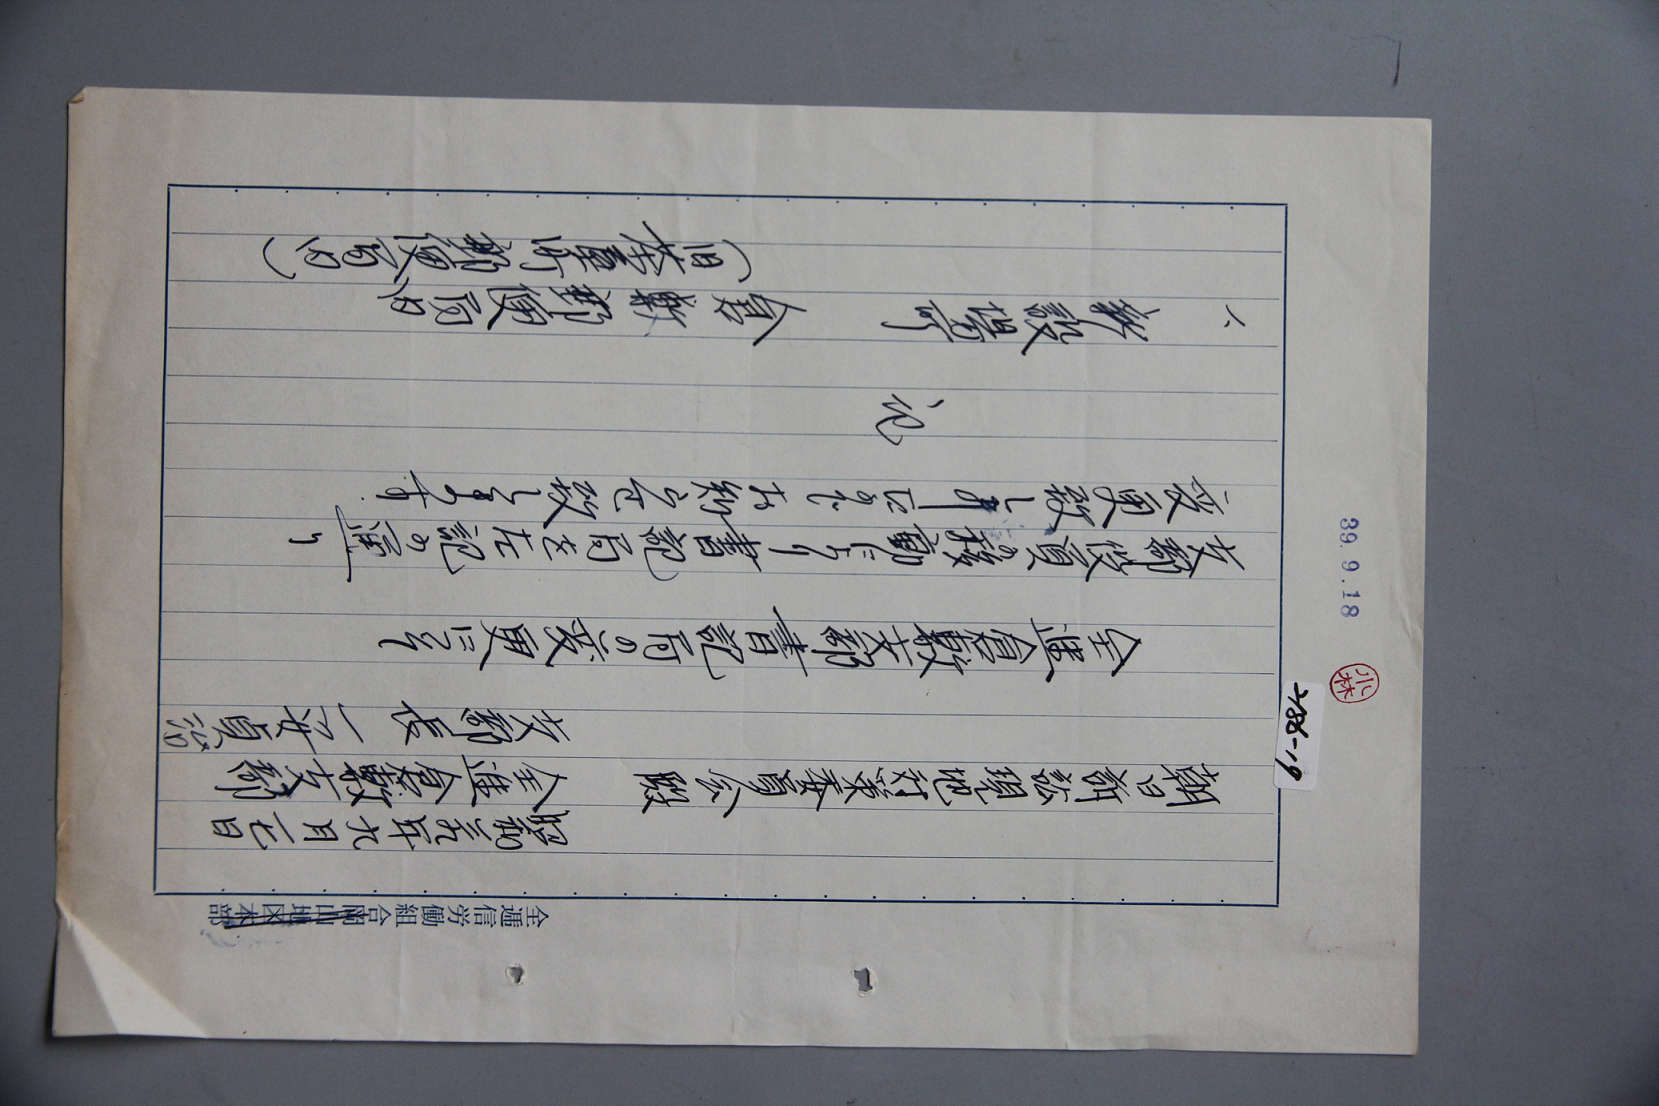 39.9.18
小林
全逓信労働組合岡山地区本部
昭和三九年九月一七日
朝日訴訟現地対策委員会 殿
全逓倉敷支部
支部長
全逓倉敷支部書記局の変更について
支部役員の移動により書記局を左記の通り
変更致しましたのでお知らせ致します
記
一、新設場所 倉敷郵便局内
(旧茶屋町郵便局内)